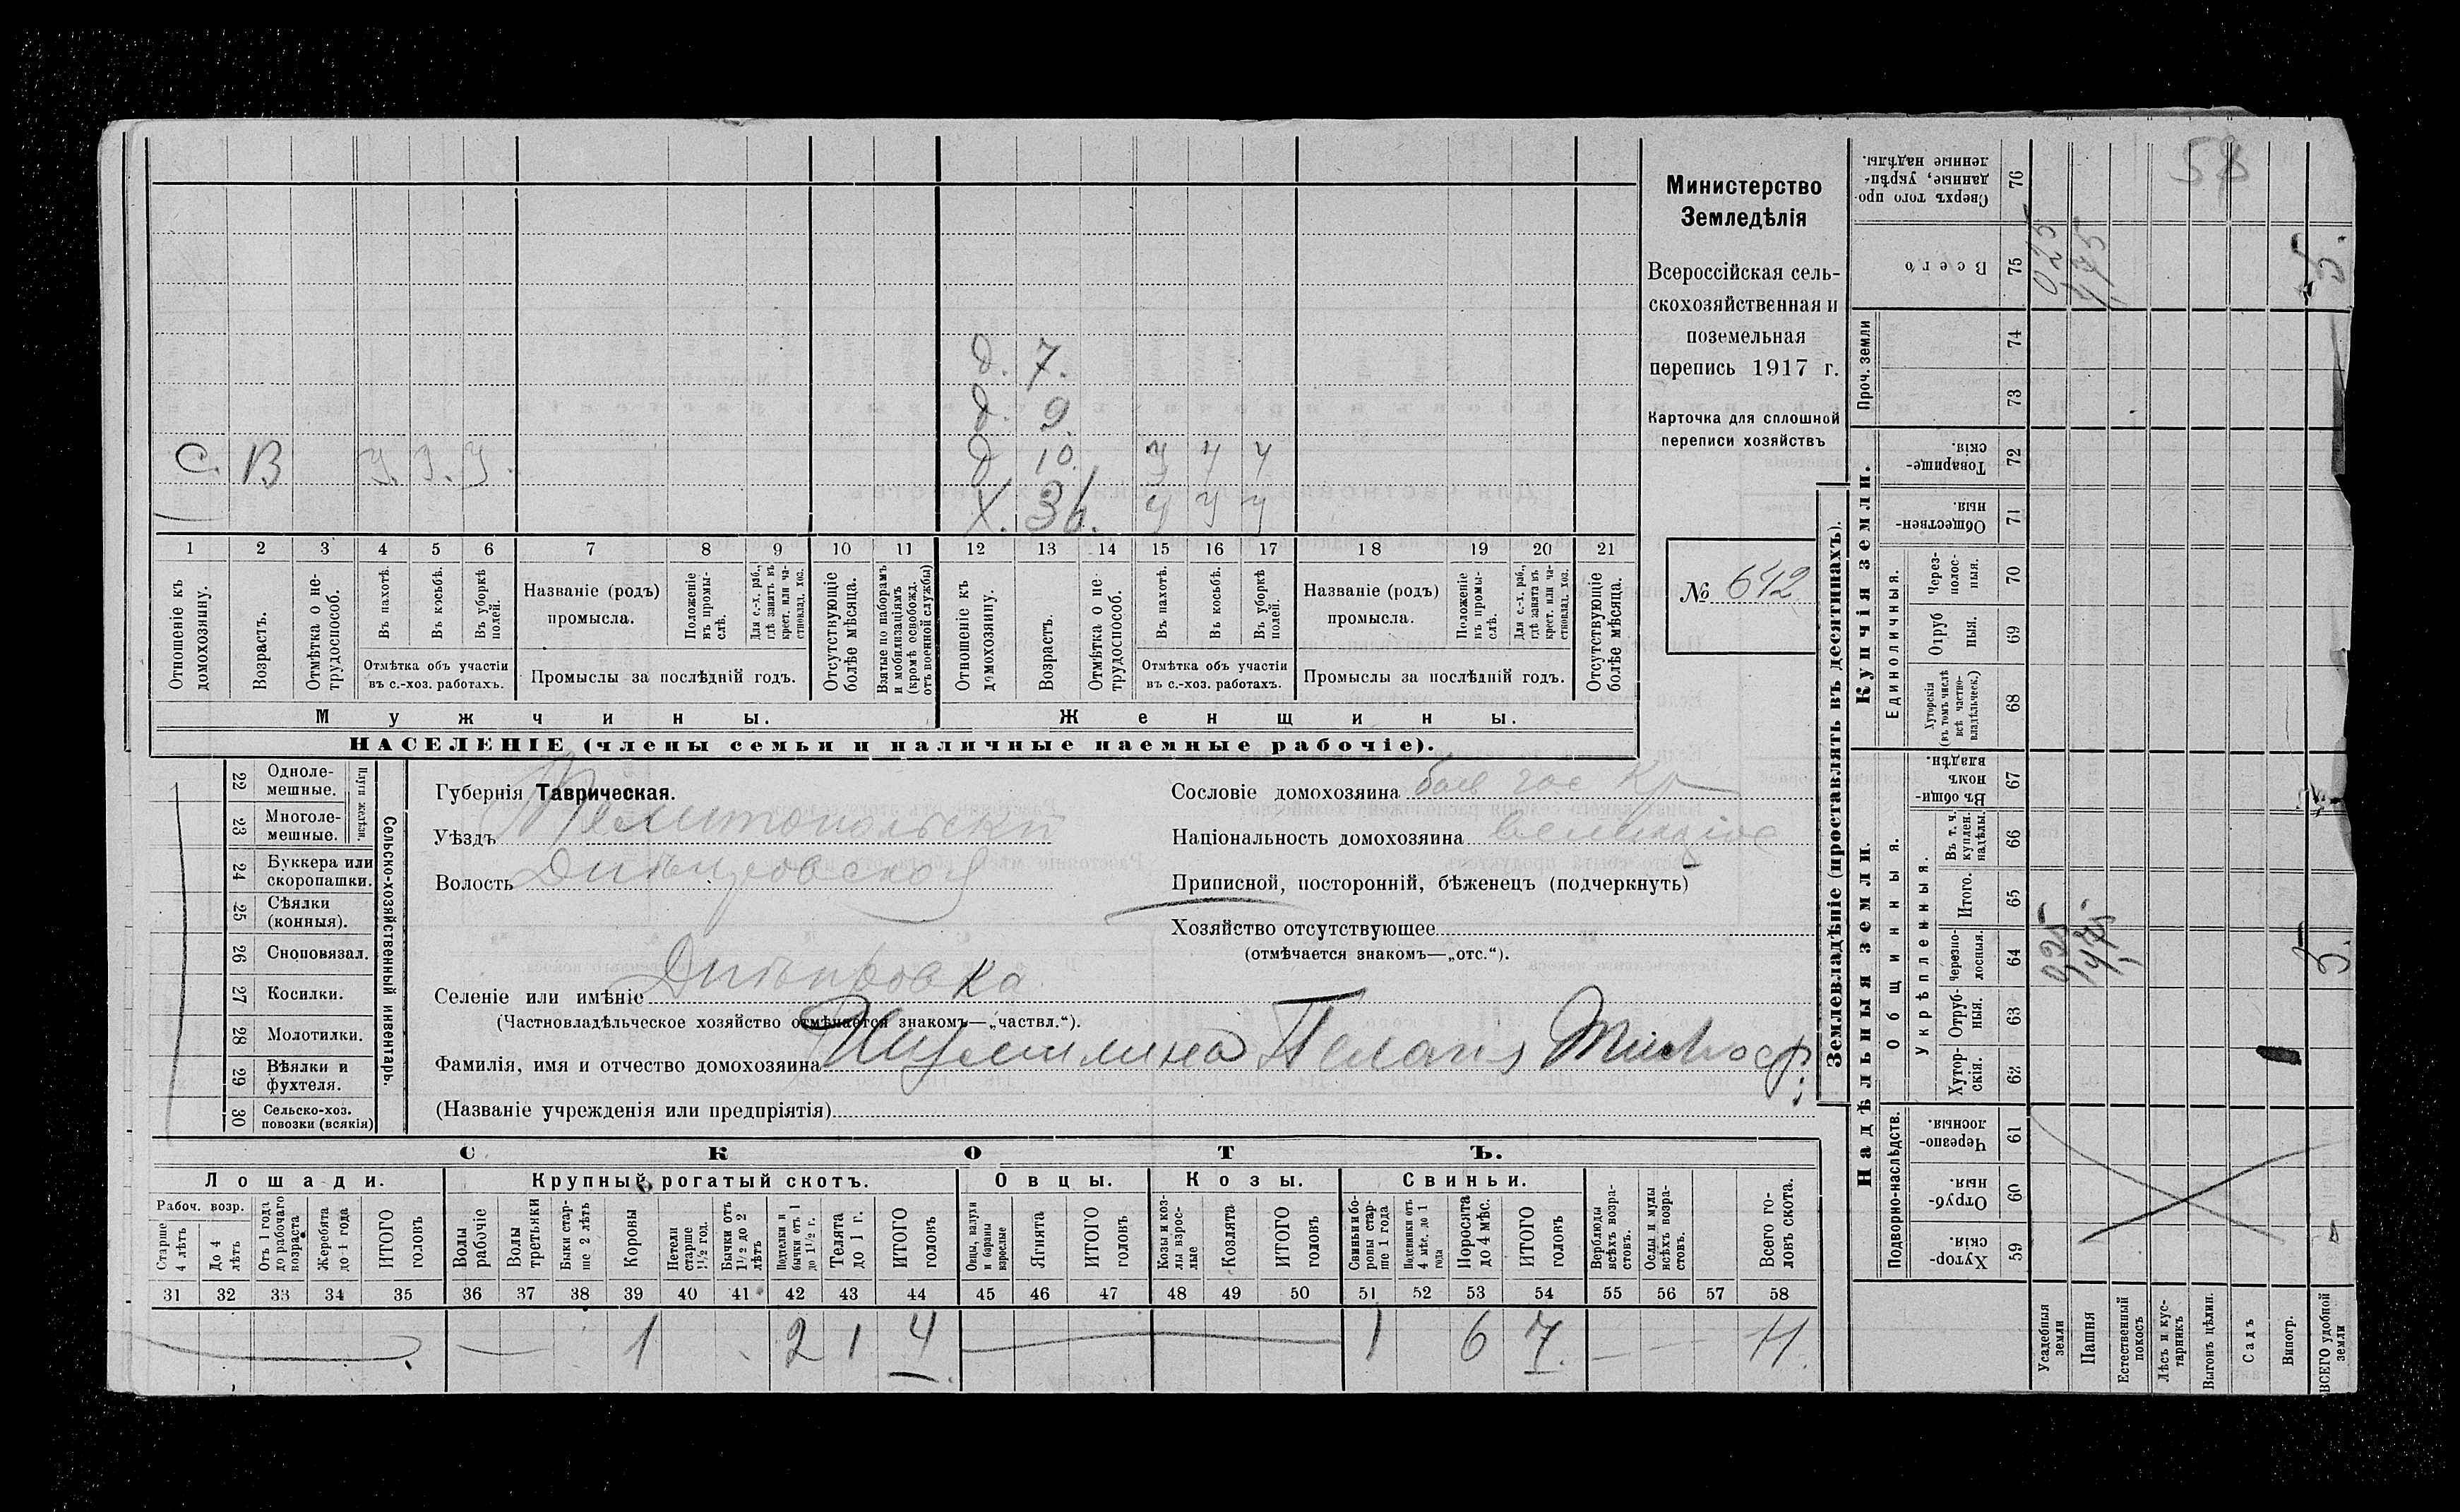 58
Министерство
Земледѣлія
Всероссійская сель-
скохозяйственная и
поземельная
перепись 1917 г.
Карточка для сплошной
переписи хозяйствъ
№ 642
д. 7.
д. 9.
С. В У. У. У. д 10. У У У
Х. 36. У У У
1 2 3 4 5 6 7 8 9 10 11 12 13 14 15 16 17 18 19 20 21
Отношеніе къ домохозяину.
Возрастъ.
Отмѣтка о не-трудоспособ.
Въ пахотѣ.
Въ косьбѣ.
Въ уборкѣ полей.
Отмѣтка объ участіи
въ с.-хоз. работахъ.
Названіе (родъ)
промысла.
Положеніе въ промы-слѣ.
Для с.-х. раб., гдѣ занятъ въ крест. или ча-стновлад. хоз.
Промыслы за послѣдній годъ.
Отсутствующіе болѣе мѣсяца.
Взятые по наборамъ и мобилизаціямъ (кромѣ освобожд. отъ военной службы)
Отношеніе къ домохозяину.
Возрастъ.
Отмѣтка о не-трудоспособ.
Въ пахотѣ.
Въ косьбѣ.
Въ уборкѣ полей.
Отмѣтка объ участіи
въ с.-хоз. работахъ.
Названіе (родъ)
промысла.
Положеніе въ промы-слѣ.
Для с.-х. раб., гдѣ занята въ крест. или ча-стновлад. хоз.
Промыслы за послѣдній годъ.
Отсутствующіе болѣе мѣсяца.
Мужчины.
Женщины.
НАСЕЛЕНІЕ (члены семьи и наличные наемные рабочіе).
Сельско-хозяйственный инвентарь.
Плуги желѣзн.
22 Одноле-мешные.
23 Многоле-мешные.
24 Буккера или скоропашки.
25 Сѣялки (конныя).
26 Сноповязал.
27 Косилки.
28 Молотилки.
29 Вѣялки и фухтеля.
30 Сельско-хоз. повозки (всякія)
Губернія Таврическая.
Уѣздъ Мелитопольскій
Волость Днѣпровской
Селеніе или имѣніе Днѣпровка
(Частновладѣльческое хозяйство отмѣчается знакомъ—„частвл.“).
Фамилія, имя и отчество домохозяина Пелагія
(Названіе учрежденія или предпріятія)
Сословіе домохозяина Кр
Національность домохозяина
Приписной, посторонній, бѣженецъ (подчеркнуть)
Хозяйство отсутствующее
(отмѣчается знакомъ—„отс.“).
СКОТЪ.
Лошади. Крупный рогатый скотъ. Овцы. Козы. Свиньи.
Рабоч. возр.
Старше 4 лѣтъ
До 4 лѣтъ
Отъ 1 года до рабочаго возраста
Жеребята до 1 года
ИТОГО головъ
Волы рабочіе
Волы третьяки
Быки стар-ше 2 лѣтъ
Коровы
Нетели старше 1½ год.
Бычки отъ 1½ до 2 лѣтъ
Подтелки и бычки отъ 1 до 1½ г.
Телята до 1 г.
ИТОГО головъ
Овцы, валухи и бараны взрослые
Ягнята
ИТОГО головъ
Козы и коз-лы взрос-лые
Козлята
ИТОГО головъ
Свиньи и бо-ровы стар-ше 1 года
Подсвинки отъ 4 мѣс. до 1 года
Поросята до 4 мѣс.
ИТОГО головъ
Верблюды всѣхъ возра-стовъ.
Ослы и мулы всѣхъ возра-стовъ.
Всего го-ловъ скота.
31 32 33 34 35 36 37 38 39 40 41 42 43 44 45 46 47 48 49 50 51 52 53 54 55 56 57 58
1 2 1 4 1 6 7. 11.
Землевладѣніе (проставлять въ десятинахъ).
Надѣльныя земли.
Купчія земли.
Проч. земли
Подворно-наслѣдств.
Общинныя.
Укрѣпленныя.
Единоличныя.
59 Хутор-скія.
60 Отруб-ныя.
61 Черезпо-лосныя.
62 Хутор-скія.
63 Отруб-ныя.
64 Черезпо-лосныя.
65 Итого.
66 Въ т. ч. куплен. надѣлы.
67 Въ общин-номъ владѣн.
68 Хуторскія (въ томъ числѣ всѣ частно-владѣльческ.)
69 Отруб ныя.
70 Через-полос-ныя.
71 Обществен-ныя.
72 Товарище-скія.
73
74
75 Всего
76 Сверхъ того про-данные, укрѣп-ленные надѣлы.
Усадебныя земли 025 025
Пашня 4,75 4,75
Естественный покосъ
Лѣсъ и кус-тарникъ
Выгонъ цѣлин.
Садъ
Виногр.
ВСЕГО удобной земли 5. 5.